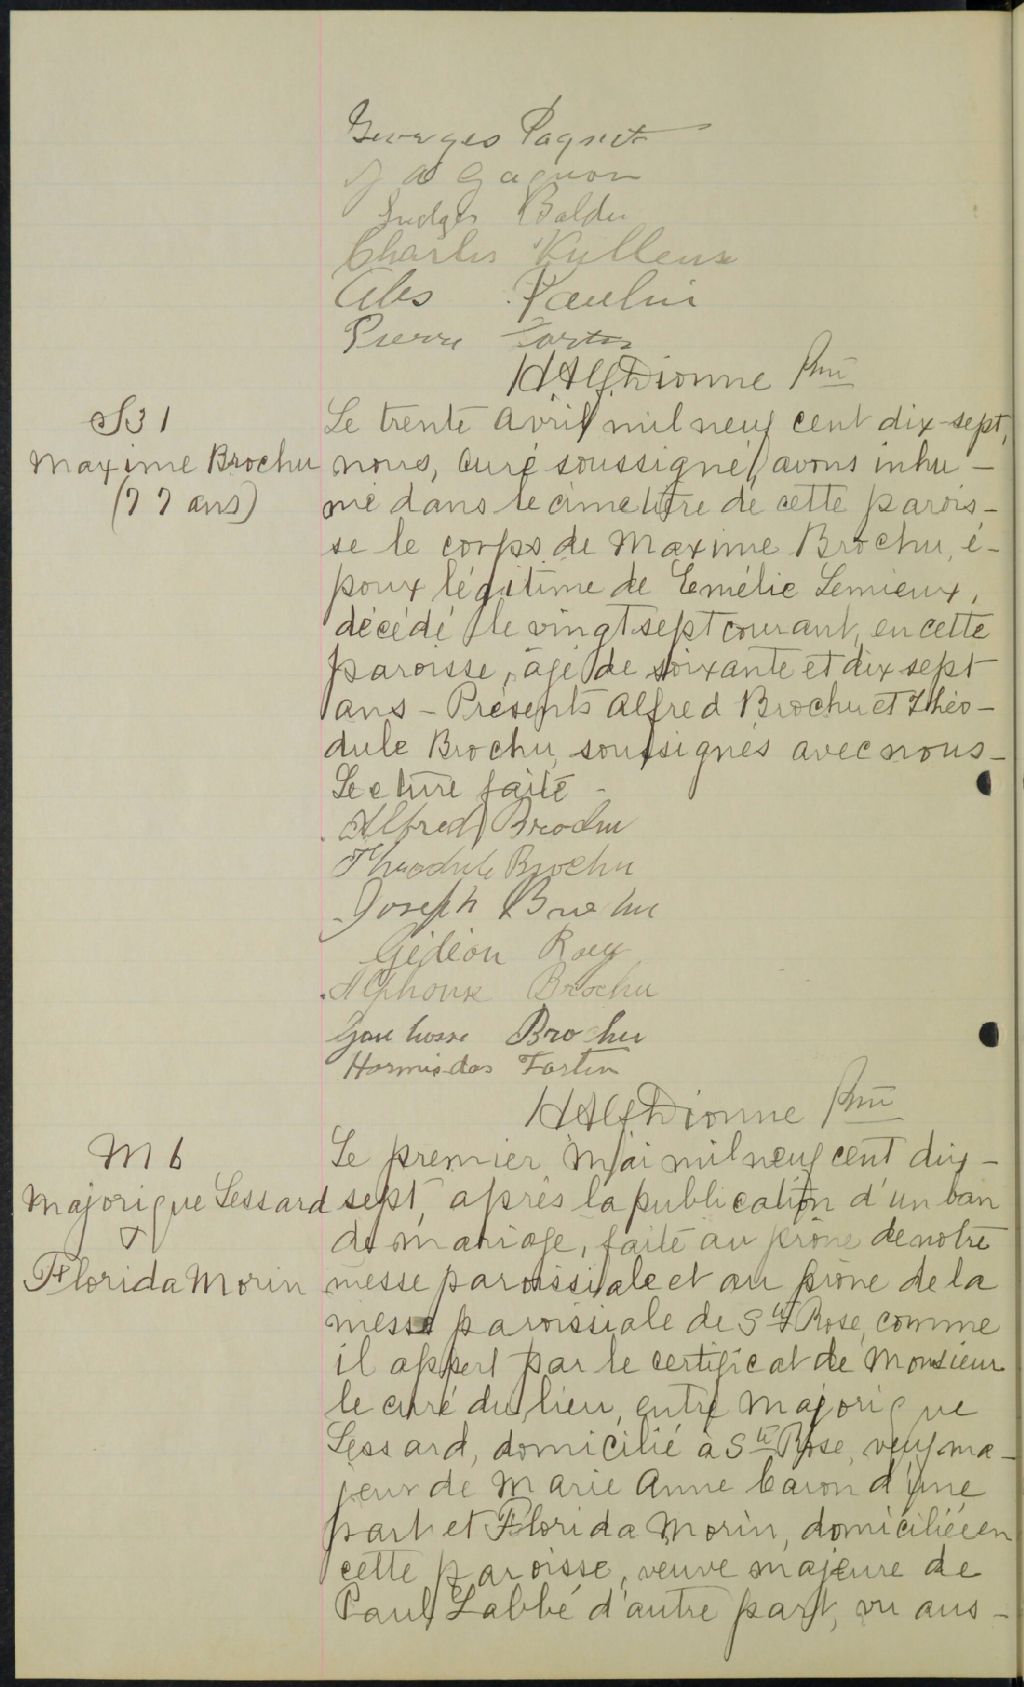 Georges Paquet
J A Gagnon
Baldu
Charles Veilleux
Paulin
Pierre Fortin
HAlfDionne Ptre
S31
Maxime Brochu
(77 ans)
Le trente avril mil neuf cent dix-sept,
nous, curé soussigné, avons inhu-
mé dans le cimetière de cette parois-
se le corps de Maxime Brochu, é-
poux légitime de Emélie Lemieux,
décédé le vingt sept courant, en cette
paroisse, âgé de soixante et dix sept
ans - Présents Alfred Brochu et Théo-
dule Brochu, soussignés avec nous -
Lecture faite -
Alfred Brochu
Theodule Brochu
Joseph Brochu
Gédéon Roy
Alphonse Brochu
Brochu
Hormisdas Fortin
HAlfDionne Ptre
M 6
Majorique Lessard
&
Florida Morin
Le premier mai mil neuf cent dix-
sept, après la publication d'un ban
de mariage, faite au prône de notre
messe paroissiale et au prône de la
messe paroissiale de Ste Rose, comme
il appert par le certificat de Monsieur
le curé du lieu, entre Majorique
Lessard, domicilié à Ste Rose, veuf ma-
jeur de Marie Anne Caron d'une
part et Florida Morin, domiciliée en
cette paroisse, veuve majeure de
Paul Labbé d'autre part, vu aus-